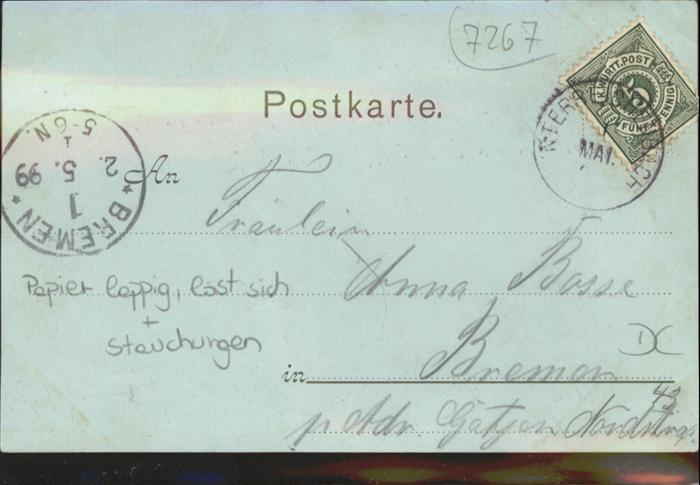 7267
K. WÜRTT. POST
5
FÜNF PFENNIG
MAI.
Postkarte.
BREMEN
1
2. 5. 99
5-6 N.
An
Fräulein
Anna Bosse
Papier lappig, löst sich
+
Stauchungen
in Bremen
p. Adr. Gätjen
43